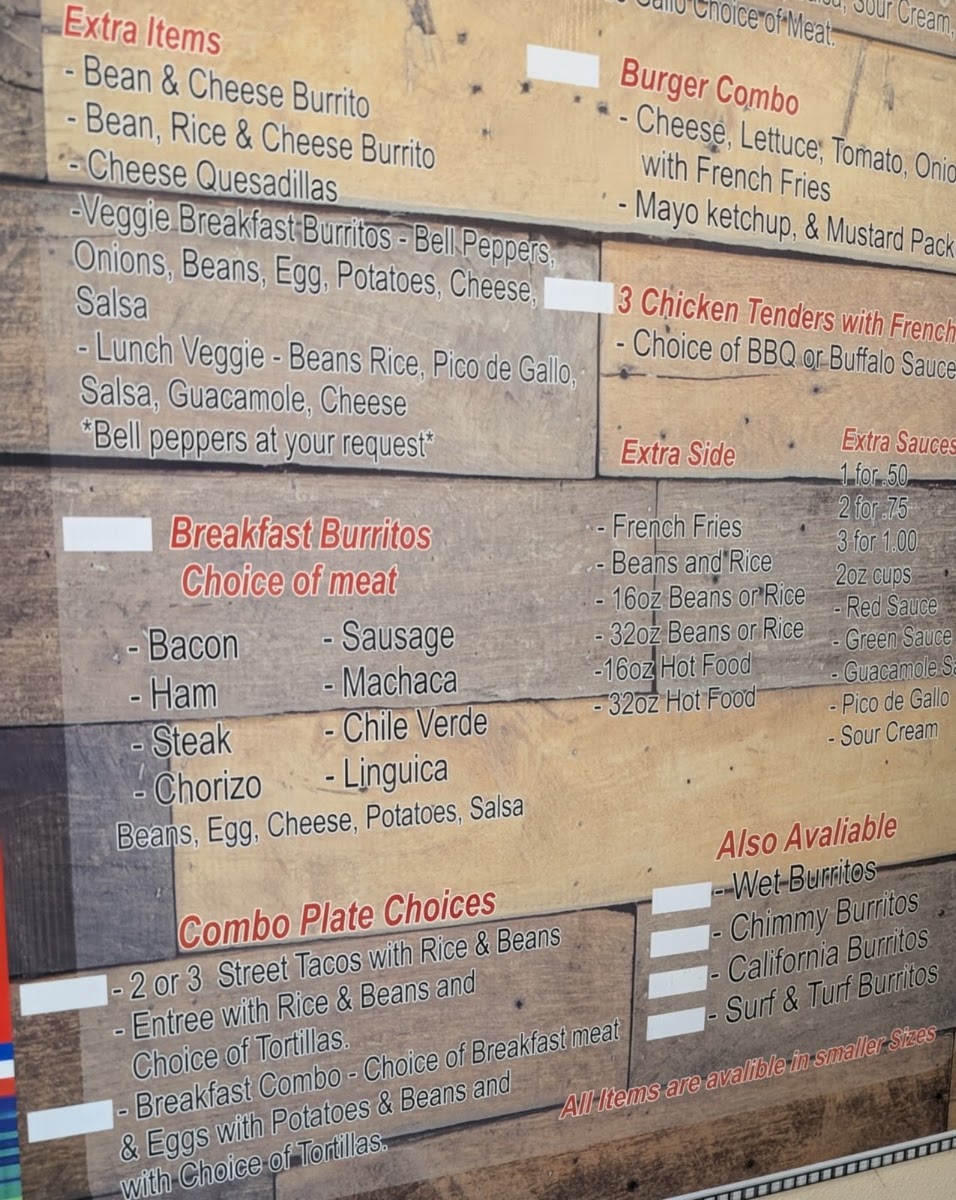 Extra Items
- Bean & Cheese Burrito
- Bean, Rice & Cheese Burrito
- Cheese Quesadillas
-Veggie Breakfast Burritos - Bell Peppers,
Onions, Beans, Egg, Potatoes, Cheese,
Salsa
- Lunch Veggie - Beans Rice, Pico de Gallo,
Salsa, Guacamole, Cheese
*Bell peppers at your request*
Breakfast Burritos
Choice of meat
- Bacon
- Ham
- Steak
- Chorizo
- Sausage
- Machaca
- Chile Verde
- Linguica
Beans, Egg, Cheese, Potatoes, Salsa
Combo Plate Choices
- 2 or 3 Street Tacos with Rice & Beans
- Entree with Rice & Beans and
Choice of Tortillas.
- Breakfast Combo - Choice of Breakfast meat
& Eggs with Potatoes & Beans and
with Choice of Tortillas.
Sour Cream,
Gallo Choice of Meat.
Burger Combo
- Cheese, Lettuce, Tomato, Onio
with French Fries
- Mayo ketchup, & Mustard Pack
3 Chicken Tenders with French
- Choice of BBQ or Buffalo Sauce
Extra Side
- French Fries
- Beans and Rice
- 16oz Beans or Rice
- 32oz Beans or Rice
-16oz Hot Food
- 32oz Hot Food
Extra Sauces
1 for .50
2 for .75
3 for 1.00
2oz cups
- Red Sauce
- Green Sauce
- Guacamole Sa
- Pico de Gallo
- Sour Cream
Also Avaliable
- Wet Burritos
- Chimmy Burritos
- California Burritos
- Surf & Turf Burritos
All Items are avalible in smaller Sizes